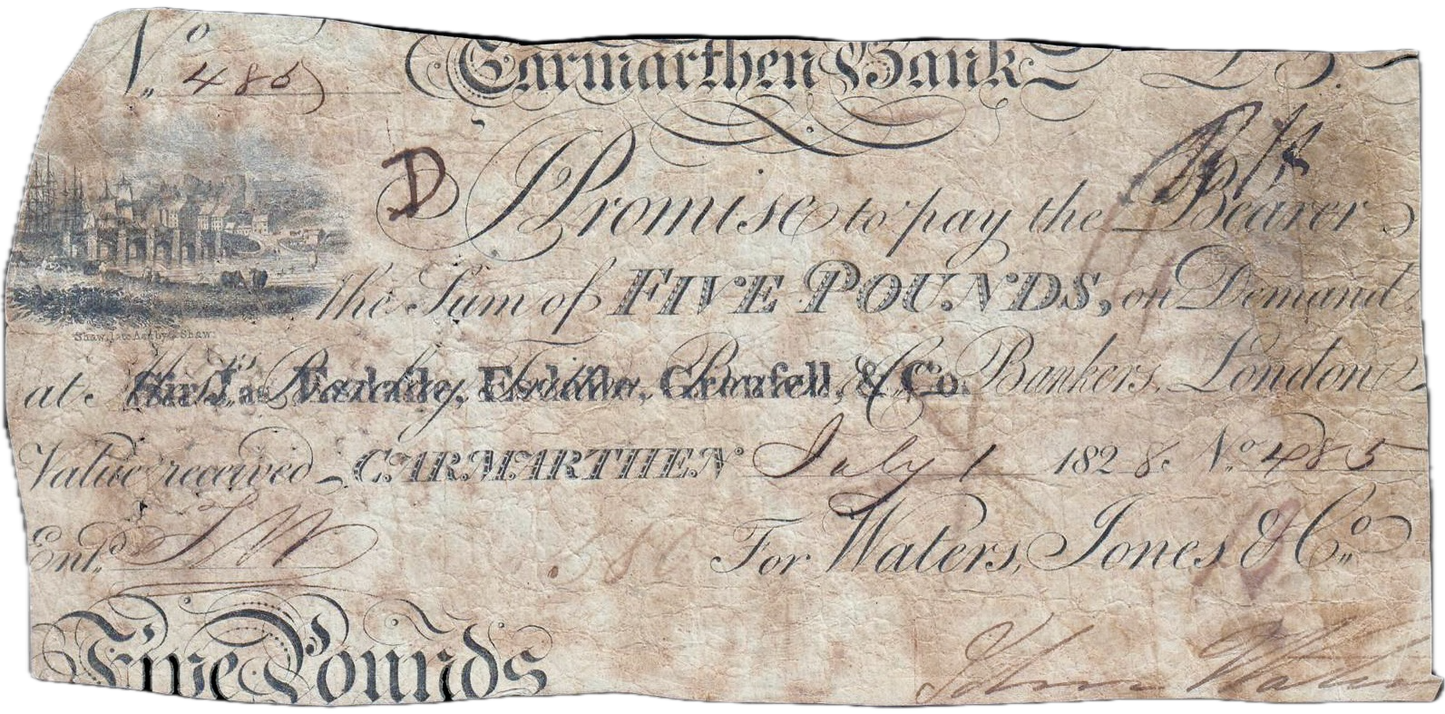 No. 485 Carmarthen Bank £5.
D I Promise to pay the Bearer
the Sum of FIVE POUNDS, on Demand
Shaw, late Ashby & Shaw.
at Sir Jas. Esdaile, Esdaile, Grenfell, & Co. Bankers, London
Value received CARMARTHEN July 1 1828 No. 485
Entd. For Waters, Jones & Co.
Five Pounds John Waters